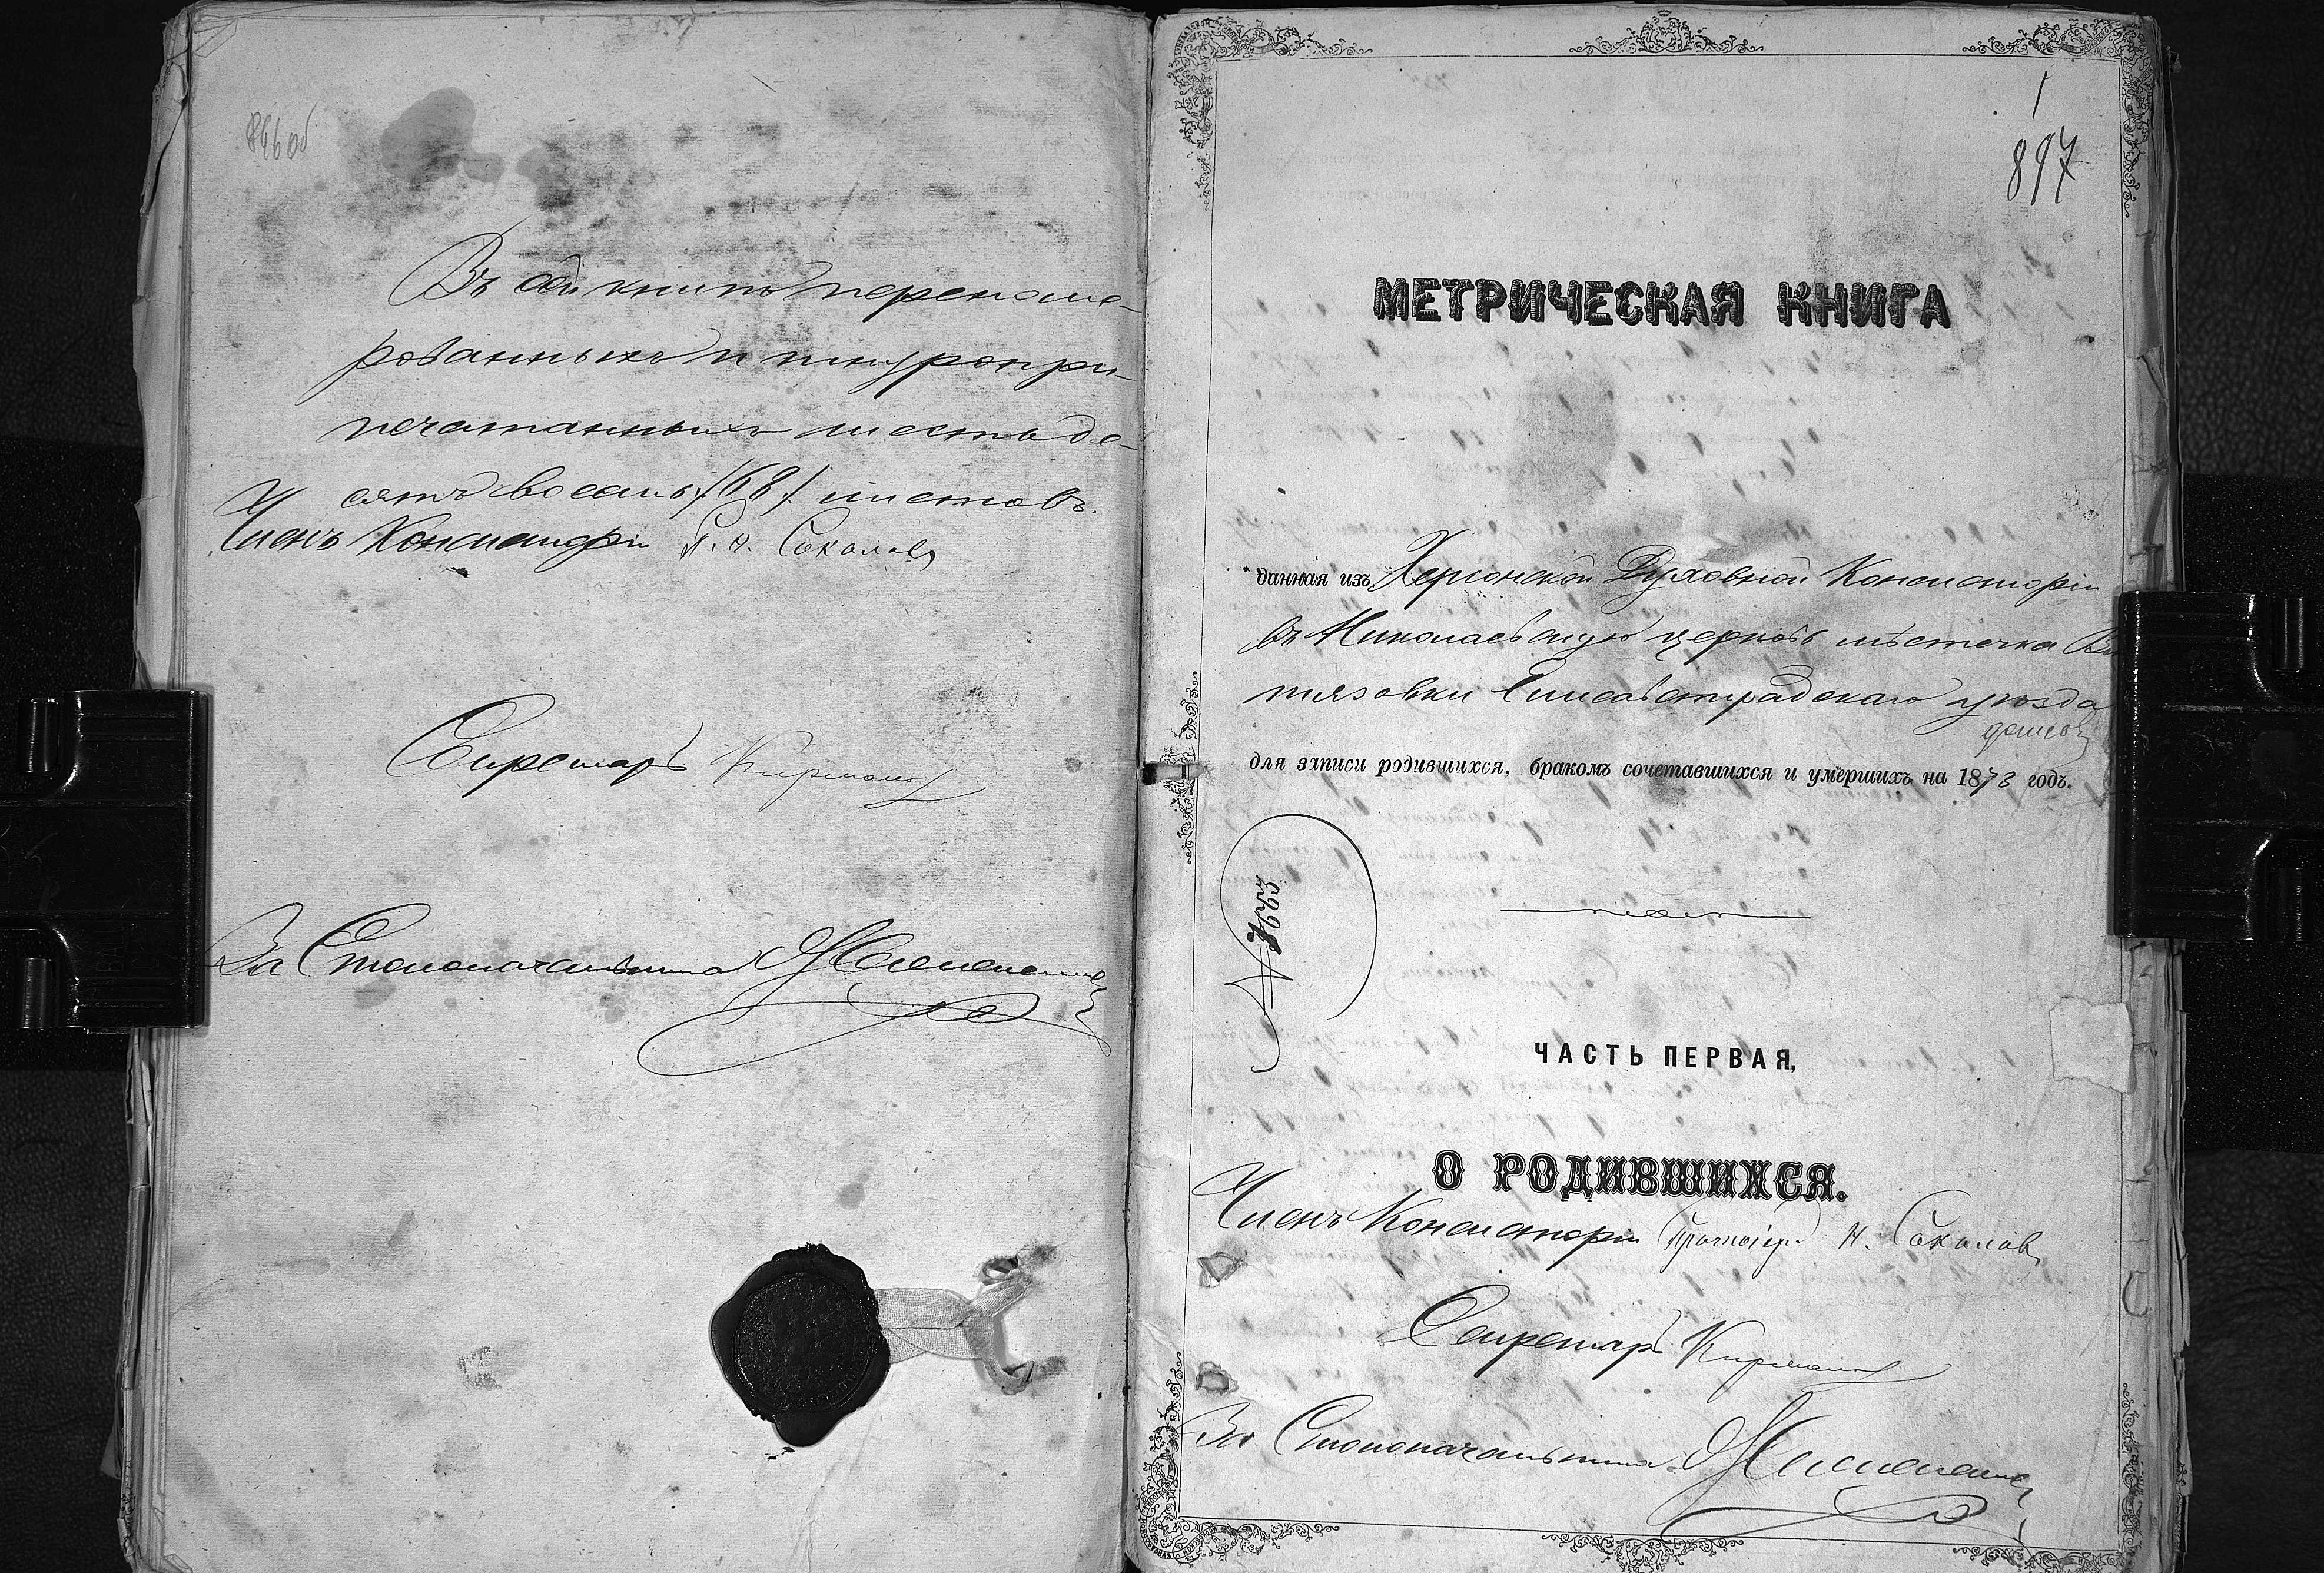 896об
Въ сей книгѣ перенуме-
рованныхъ и шнуропри-
печатанныхъ шестьде-
сятъ восемь /68/ листовъ.
Членъ Консисторіи П. Н. Соколовъ
Секретарь
За Столоначальника
1
897
МЕТРИЧЕСКАЯ КНИГА
данная изъ Херсонской Духовной Консисторіи
въ Николаевскую церковь мѣстечка Ви
тязовки Елисаветградскаго уѣзда
для записи родившихся, бракомъ сочетавшихся и умершихъ на 1873 годъ.
№ 7663
ЧАСТЬ ПЕРВАЯ,
О РОДИВШИХСЯ.
Членъ Консисторіи Протоіерей Н. Соколовъ
Секретарь
За Столоначальника